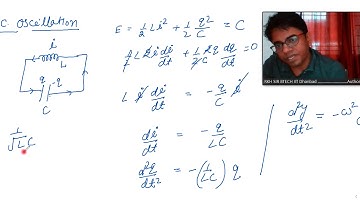 C. Oscillation
i
L
q -q
C
1/√LC
E = 1/2 Li² + 1/2 q²/C = C
1/2 L 2i di/dt + 1/2C 2q dq/dt = 0
L i di/dt = - q/C i
di/dt = - q/LC
d²q/dt² = -(1/LC) q
d²y/dt² = -ω²
RKH SIR BTECH IIT Dhanbad